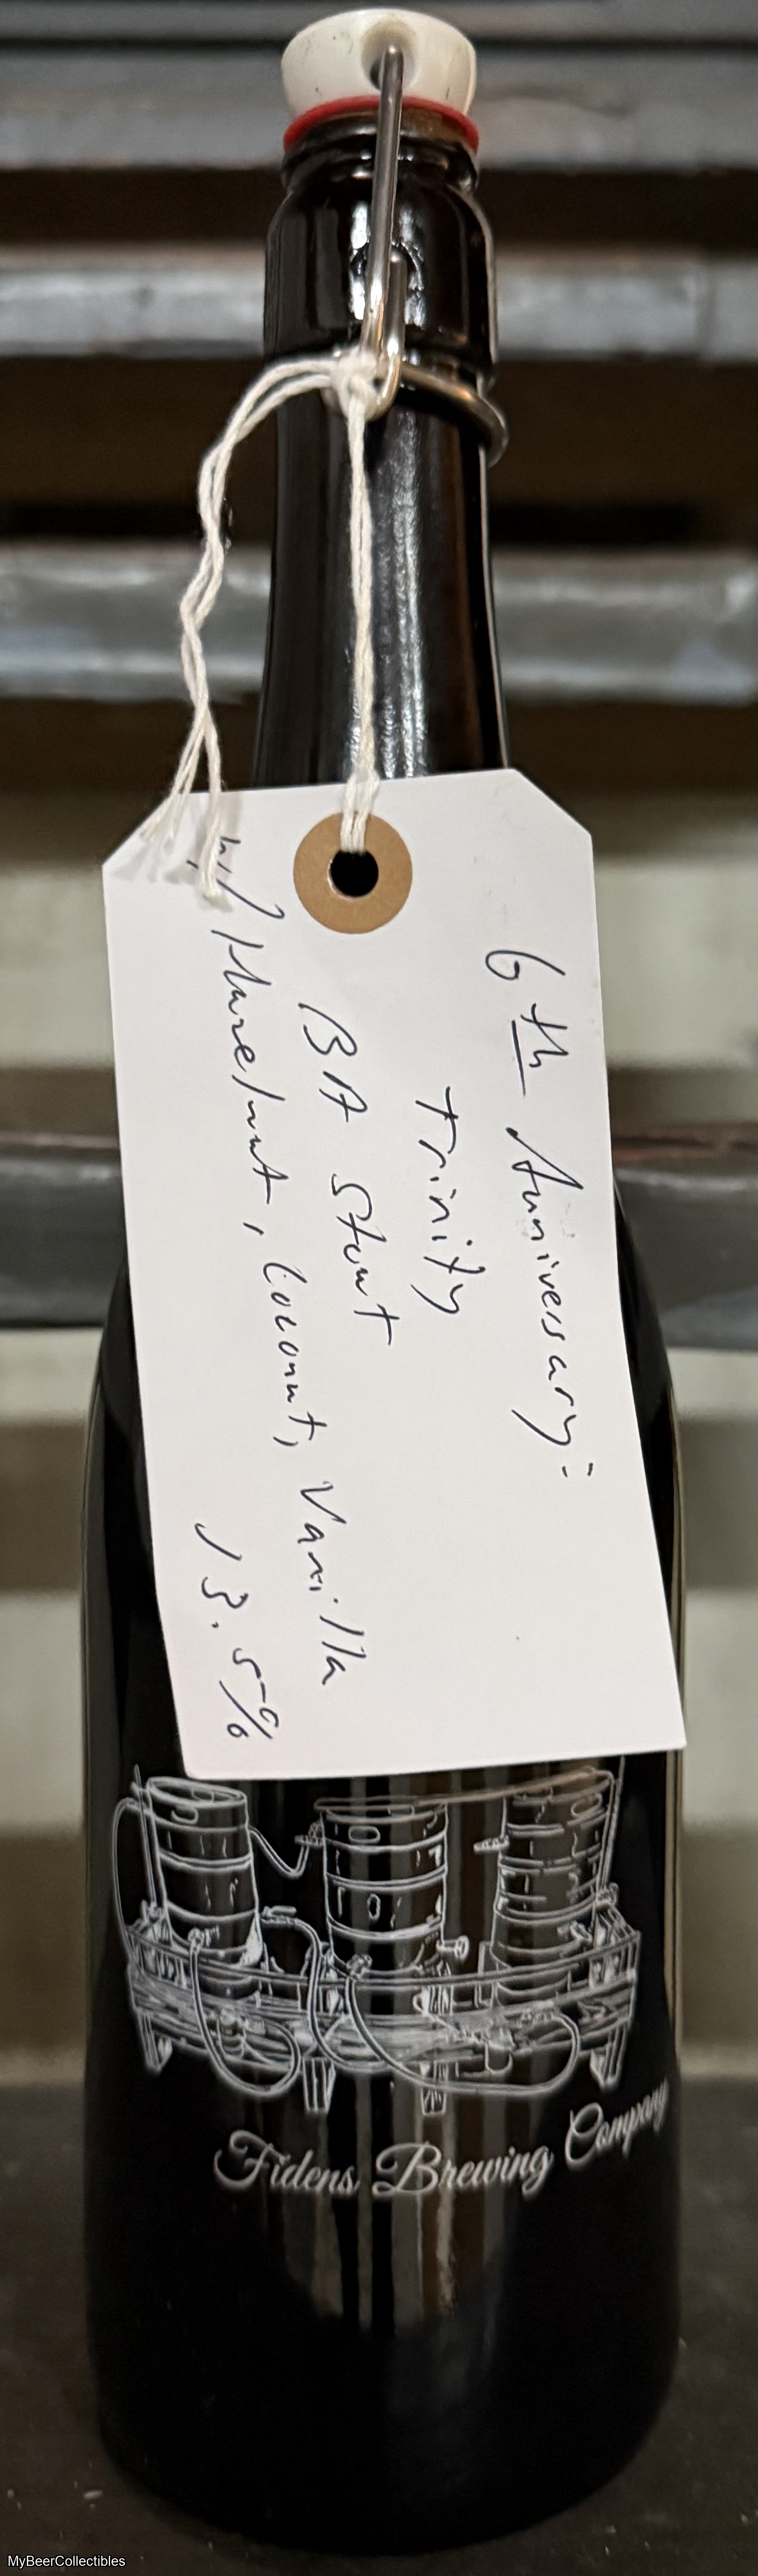 6th Anniversary:
Trinity
BA Stout
w/ Hazelnut, Coconut, Vanilla
13.5%
Fidens Brewing Company
MyBeerCollectibles